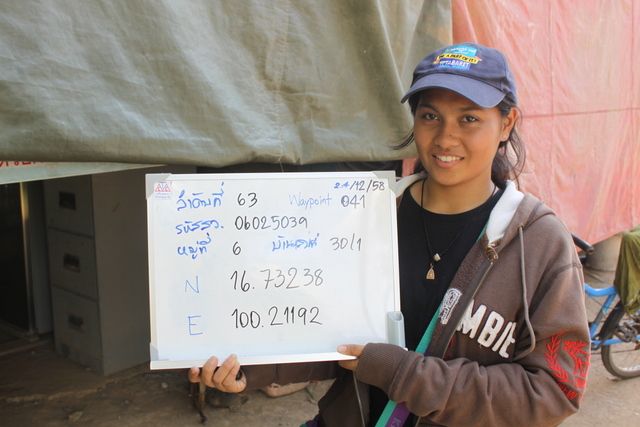 24/12/58
ลำดับที่ 63 Waypoint 041
รหัสสว. 06025039
หมู่ที่ 6 บ้านเลขที่ 30/1
N 16.73238
E 100.21192
MBIE